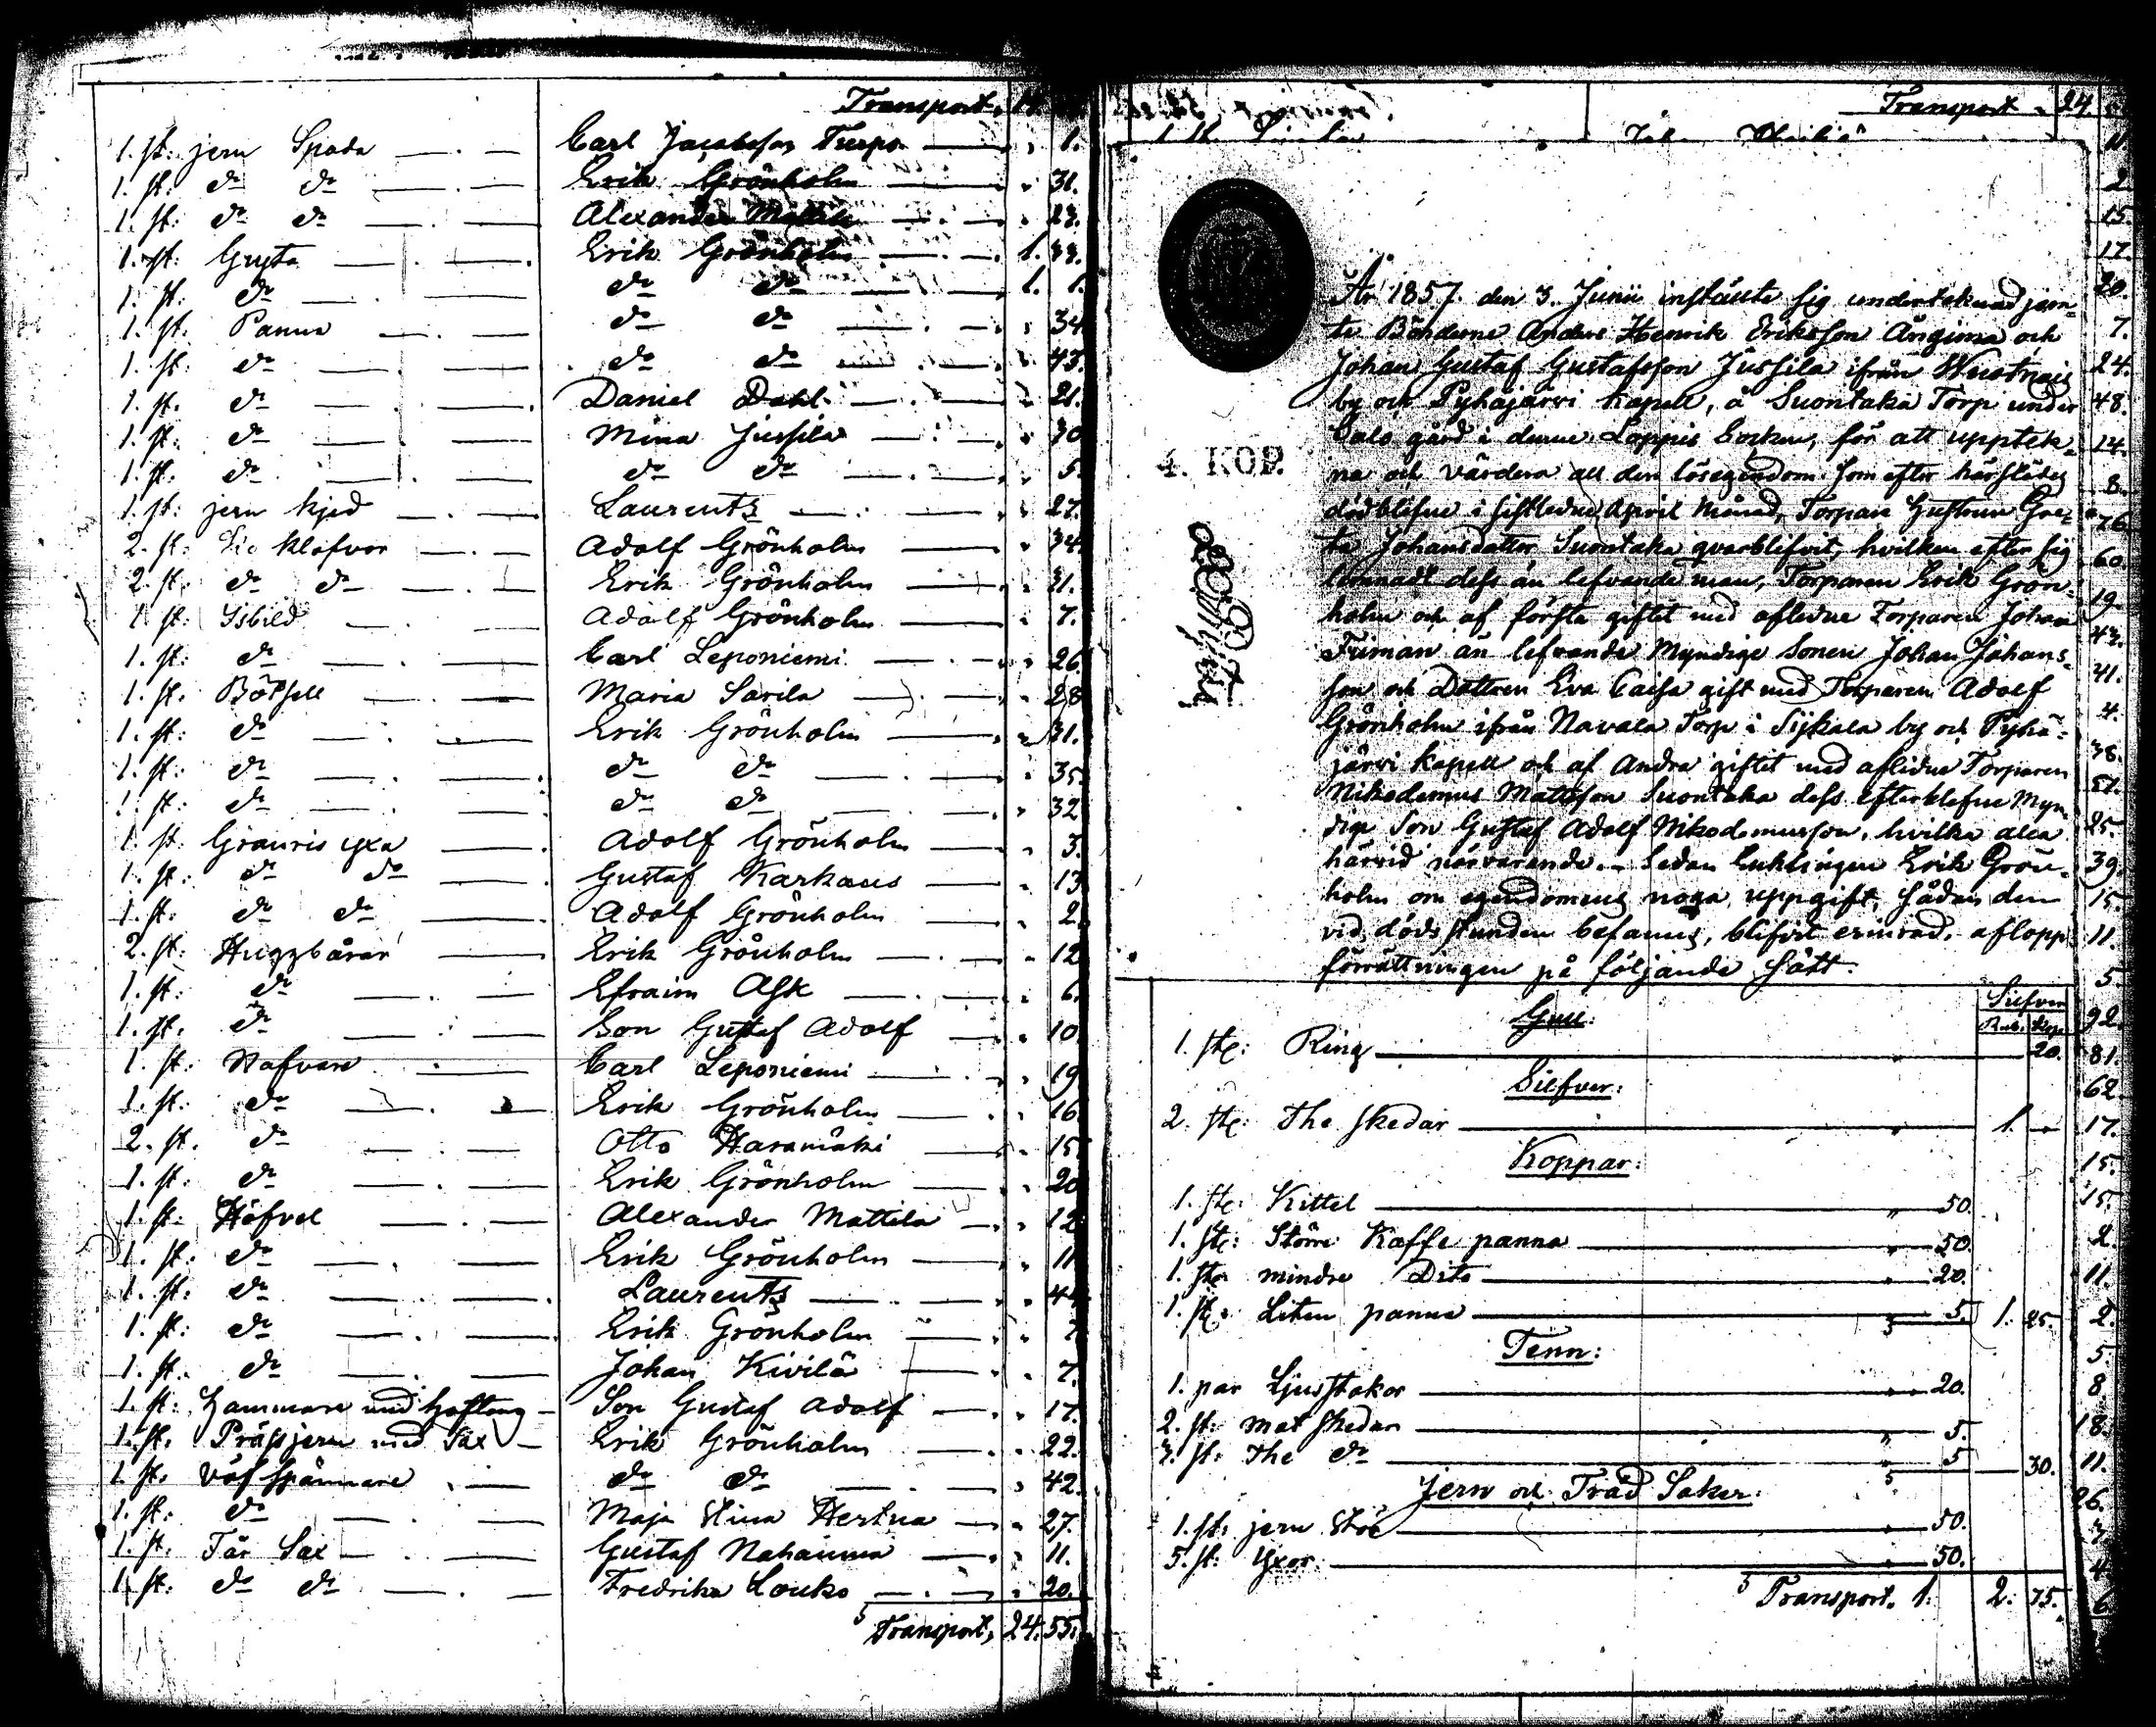 Transport,
1. st: jern Spada Carl Jacobsson Turpo " 1.
1. st: do do Erik Grönholm " 31.
1. st: do do Alexander Mattila " 23.
1. st: Gryta Erik Grönholm 1. 33.
1. st: do do do 1. 1.
1. st: Panna do do " 34
1. st: do do do " 43.
1. st. do Daniel Dahl " 21.
1. st: do Mina Jussila " 30
1. st. do do do " 5.
1. st: jern kjed Laurents " 27.
2. st: klafvor Adolf Grönholm " 34.
2. st: do do Erik Grönholm " 31.
1. st: Isbild Adolf Grönholm " 7.
1. st: do Carl Leponiemi " 26
1. st. Maria Sarila " 28
1. st: do Erik Grönholm " 31.
1. st: do do do " 35.
1. st: do do do " 32
1. st: yxa Adolf Grönholm " 3.
1. st: do do Gustaf Karkaus " 13
1. st: do do Adolf Grönholm " 2.
2. st: Huggbårar Erik Grönholm " 12
1. st: do Efraim Ask " 6.
1. st. do Son Gustaf Adolf " 10.
1. st: Nafvare Carl Leponiemi " 19
1. st: do Erik Grönholm " 16.
2. st. do Otto Haramäki " 15
1. st: do Erik Grönholm " 20
1. st: Höfvel Alexander Mattila " 12
1. st: do Erik Grönholm " 11
1. st: do Laurents " 44
1. st: do Erik Grönholm " 7.
1. st. do Johan Kivilä " 7.
1. st: Hammare med Hoftong Son Gustaf Adolf " 17.
1. st. Prässjern med Sax Erik Grönholm " 22.
1. st. Väfspännare do do " 42.
1. st: do Maja Stina Hertua " 27.
1. st. Får Sax Gustaf Nahainma " 11.
1. st: do do Fredrika Louko " 20.
Transport, 24. 55.
Transport 24.
4. KOP.
År 1857. den 3. Junii instälte sig undertecknad jem-
te Bönderne Anders Henrik Eriksson Ängima och
Johan Gustaf Gustafsson Jussila ifrån
by och Pyhäjärvi Kapell, å Suontaka Torp under
gård i denne Loppis Socken, för att upptek-
na och värdera all den lösegendom som efter härstädes
dödblifne i sistledne April Månad, Torpare Hustrun Gre-
ta Johansdotter Suontaka qvarblifvit, hvilken efter sig
lemnadt dess än lefvande man, Torparen Erik Grön-
holm och af första giftet med aflidne Torparen Johan
Friman än lefvande Myndige Sonen Johan Johans-
son och Dottren Eva Caisa gift med Torparen Adolf
Grönholm ifrån Navala Torp i by och Pyhä-
järvi Kapell och af Andra giftet med aflidne Torparen
Nikodemus Mattsson Suontaka dess efterblefne Myn
dige Son Gustaf Adolf Nikodemusson, hvilka alla
härvid närvarande. Sedan Enklingen Erik Grön-
holm om egendomens noga uppgift, sådan den
vid dödsstunden befanns, blifvit erinrad, aflopp
förrättningen på följande sätt.
Silfver
Rub. Kop.
Gull:
1. stc: Ring " 20.
Silfver:
2. stc: The skedar 1. "
Koppar:
1. stc: Kittel " 50.
1. stc: Större Kaffe panna " 50.
1. stc: mindre Dito " 20.
1. stc: Liten panna " 5. 1. 25.
Tenn:
1. par Ljusstakar " 20.
2. st: mat skedar " 5.
3. st: The do " 5 30.
Jern och Träd Saker:
1. st: jern Stör " 50.
5. st: Yxor " 50.
Transport. 1. 2. 75.
11
2.
15.
17.
20.
7.
24.
48.
14.
8.
76.
60.
19.
43.
41.
4.
38.
51.
25.
39.
15.
11.
5.
92.
81.
62.
17.
15.
15.
2.
11.
2.
5.
8
18.
11.
26.
3
4
6